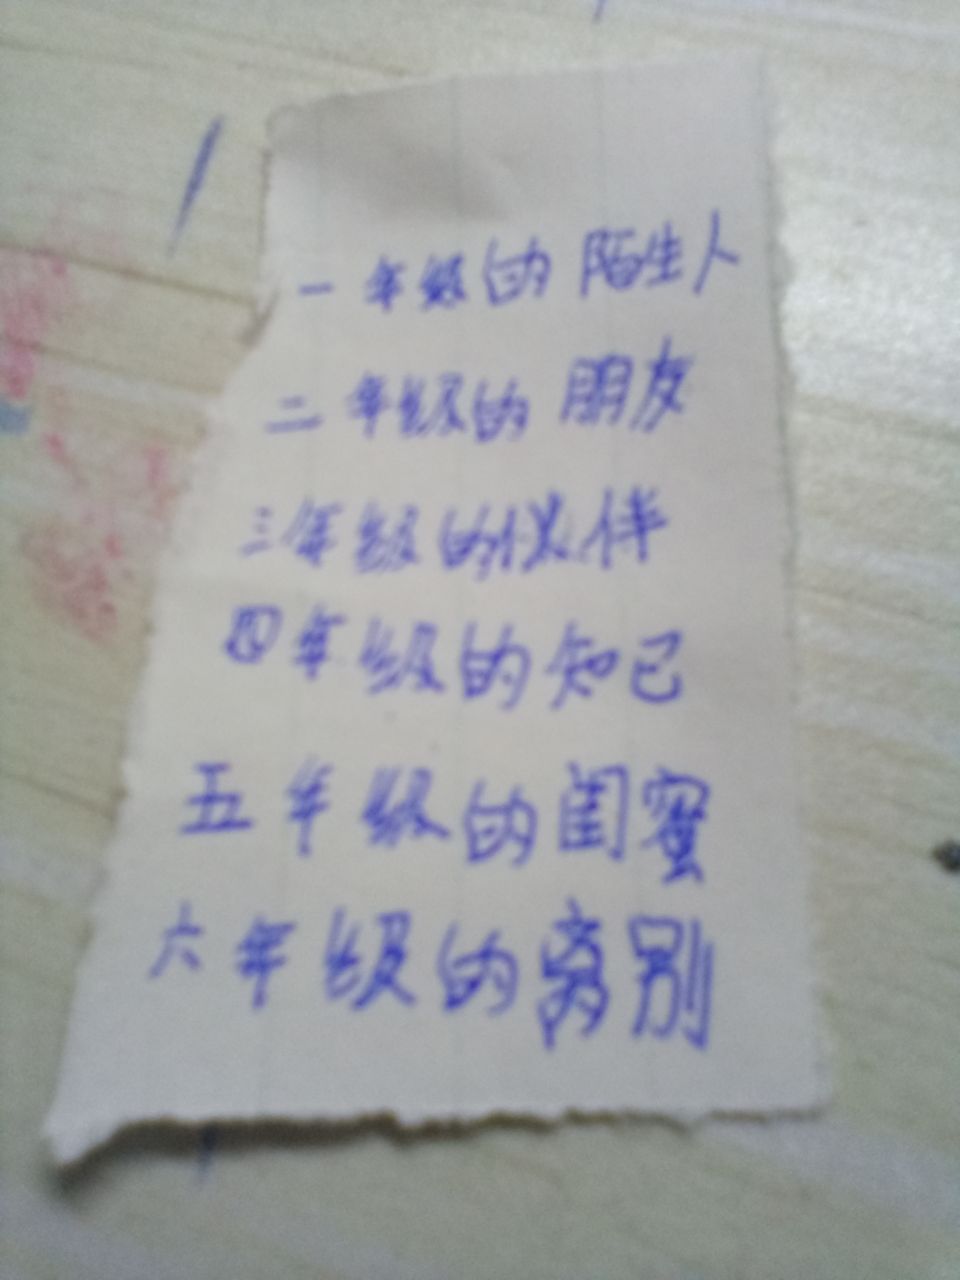 一年级的陌生人
二年级的朋友
三年级的伙伴
四年级的知己
五年级的闺蜜
六年级的离别